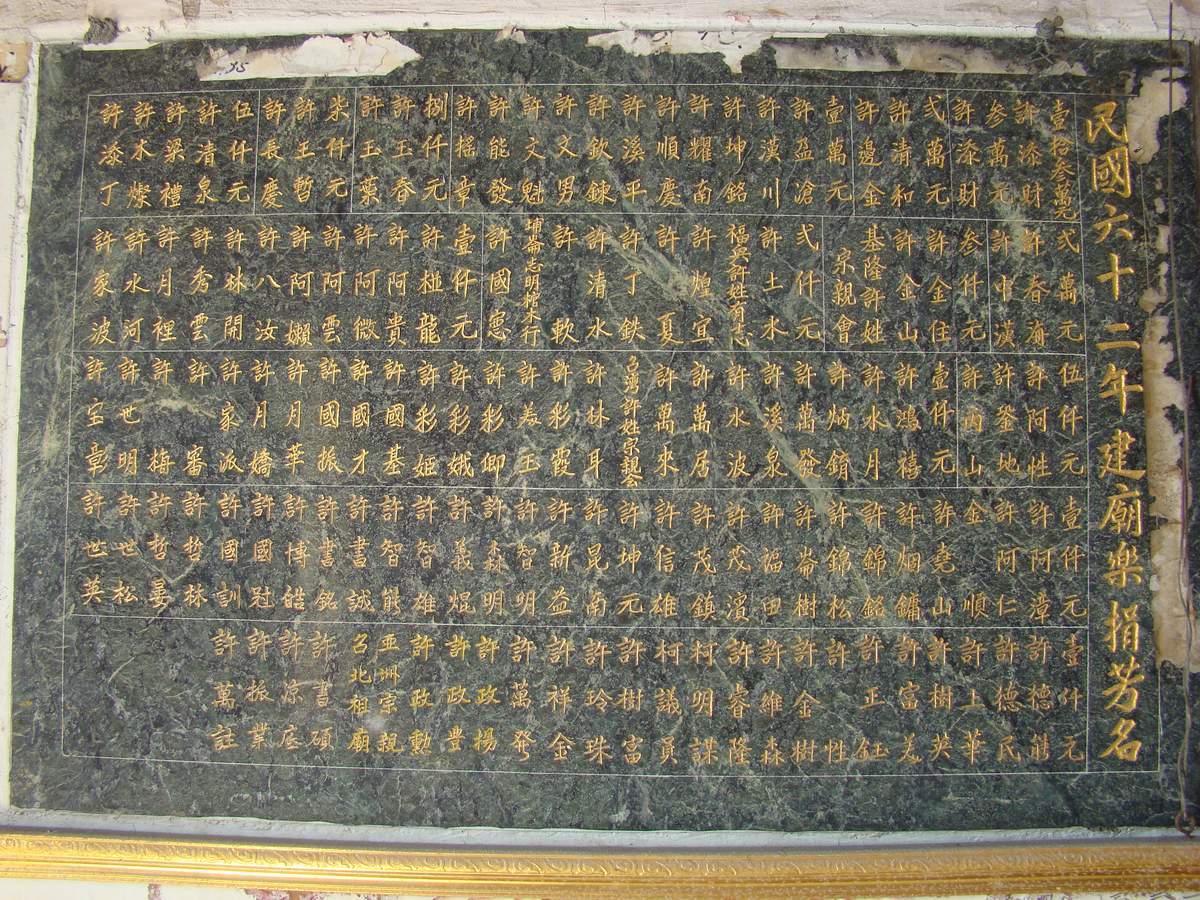 民國六十二年建廟樂捐芳名
壹拾參萬元
許漆財
參萬元
許漆財
弍萬元
許清和
許邊金
壹萬元
許盈滄
許漢川
許坤銘
許耀南
許順慶
許溪平
許欽鍊
許文男
許文魁
許能發
許搖章
捌仟元
許玉春
許玉葉
柒仟元
許玉暫
許長慶
伍仟元
許清泉
許梁禮
許木燦
許漆丁
弍萬元
許春海
許中漢
參仟元
許金住
許金山
基隆許姓
宗親會
弍仟元
許土水
福興許姓有志
許煌宜
許萬夏
許丁鉄
許清水
許軟
埔崙志明棺木行
許國憲
壹仟元
許椪龍
許阿貴
許阿微
許阿雲
許阿嬾
許八汝
許林開
許秀雲
許月裡
許水河
許家波
伍仟元
許阿性
許釜地
許丙山
壹仟元
許鴻禧
許水月
許炳錥
許萬發
許溪泉
許水波
許萬居
許萬來
台灣許姓宗親會
許林耳
許彩霞
許美玉
許彩卿
許彩娥
許彩姬
許國基
許國才
許國振
許月華
許月嬌
許家派
許審
許梅
許世明
許宝彰
壹仟元
許阿漳
許阿仁
金順
許堯山
許烟鏞
許錦銘
許錦松
許崙樹
許福田
許茂濱
許茂鎮
許信雄
許坤元
許昆南
許新益
許智明
許森明
許義焜
許智雄
許智能
許書誠
許書銘
許博皓
許國冠
許國訓
許哲林
許哲晏
許世松
許世英
壹仟元
許德能
許德民
許上華
許樹英
許富羌
許正鈺
許性
許金樹
許維森
許睿隆
柯明謀
柯議員
許樹富
許玲珠
許祥金
許萬發
許政揚
許政豊
許政勳
亚洲宗親
台北祖廟
許書碩
許凉底
許振業
許萬註